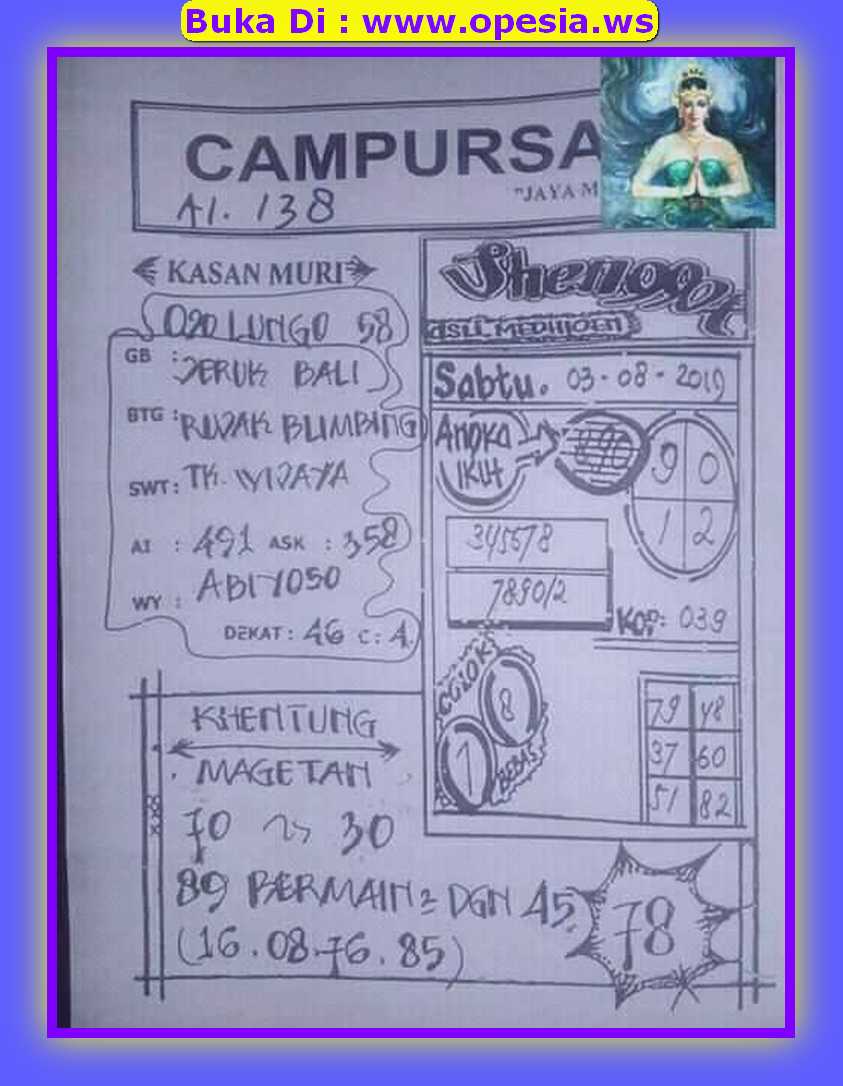 Buka Di : www.opesia.ws
CAMPURSA
"JAYA M
AI. 138
KASAN MURI
LUNGO 58
GB : JERUK BALI
BTG : RUJAK BLIMBING
SWT : TK. WIJAYA
AI : 491 ASK : 358
WY :
DEKAT : 46 C : 4.
ASLI MEDHIOEN
Sabtu. 03-08-2019
Angka IKUT
890
9 0
1 2
345678
789012
KOP: 039
COLOK
8
1
BEBAS
79 48
37 60
51 82
KHENTUNG
MAGETAN
70 30
89 BERMAIN2 DGN 45
(16.08.76.85)
78